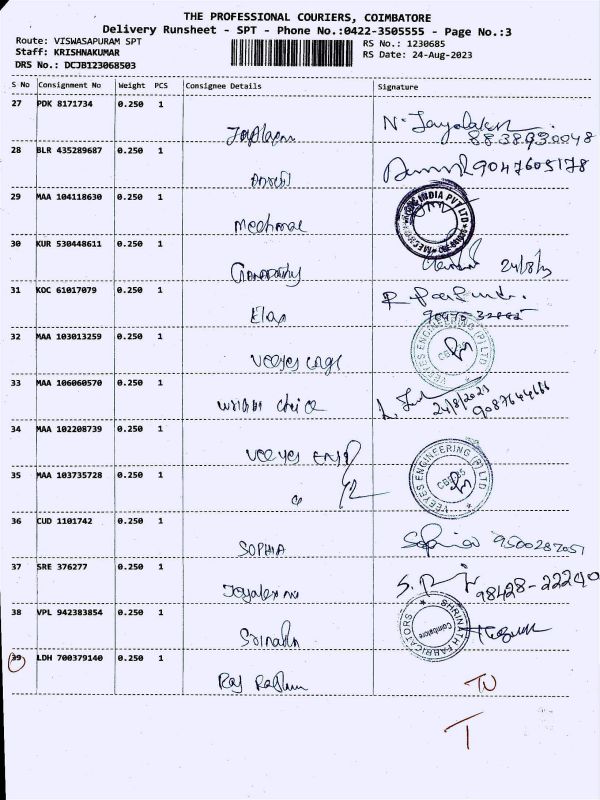 THE PROFESSIONAL COURIERS, COIMBATORE
Delivery Runsheet - SPT - Phone No.:0422-3505555 - Page No.:3
Route: VISWASAPURAM SPT
Staff: KRISHNAKUMAR
DRS No.: DCJB123068503
RS No.: 1230685
RS Date: 24-Aug-2023
S No Consignment No Weight PCS Consignee Details Signature
27 PDK 8171734 0.250 1
28 BLR 435289687 0.250 1
9047605178
29 MAA 104118630 0.250 1
INDIA PVT LTD
30 KUR 530448611 0.250 1
Ganapathy 24/8/23
31 KOC 61017079 0.250 1
32 MAA 103013259 0.250 1
Veeyes engg
VEEYES ENGINEERING (P) LTD
33 MAA 106060570 0.250 1
24/8/2023
9087644666
34 MAA 102208739 0.250 1
Veeyes Engg
VEEYES ENGINEERING (P) LTD
35 MAA 103735728 0.250 1
36 CUD 1101742 0.250 1
SOPHIA Sophia 9500287051
37 SRE 376277 0.250 1
98428-22240
38 VPL 942383854 0.250 1
Srinath
SHRINATH FABRICATORS
Coimbatore
39 LDH 700379140 0.250 1
Raj
T